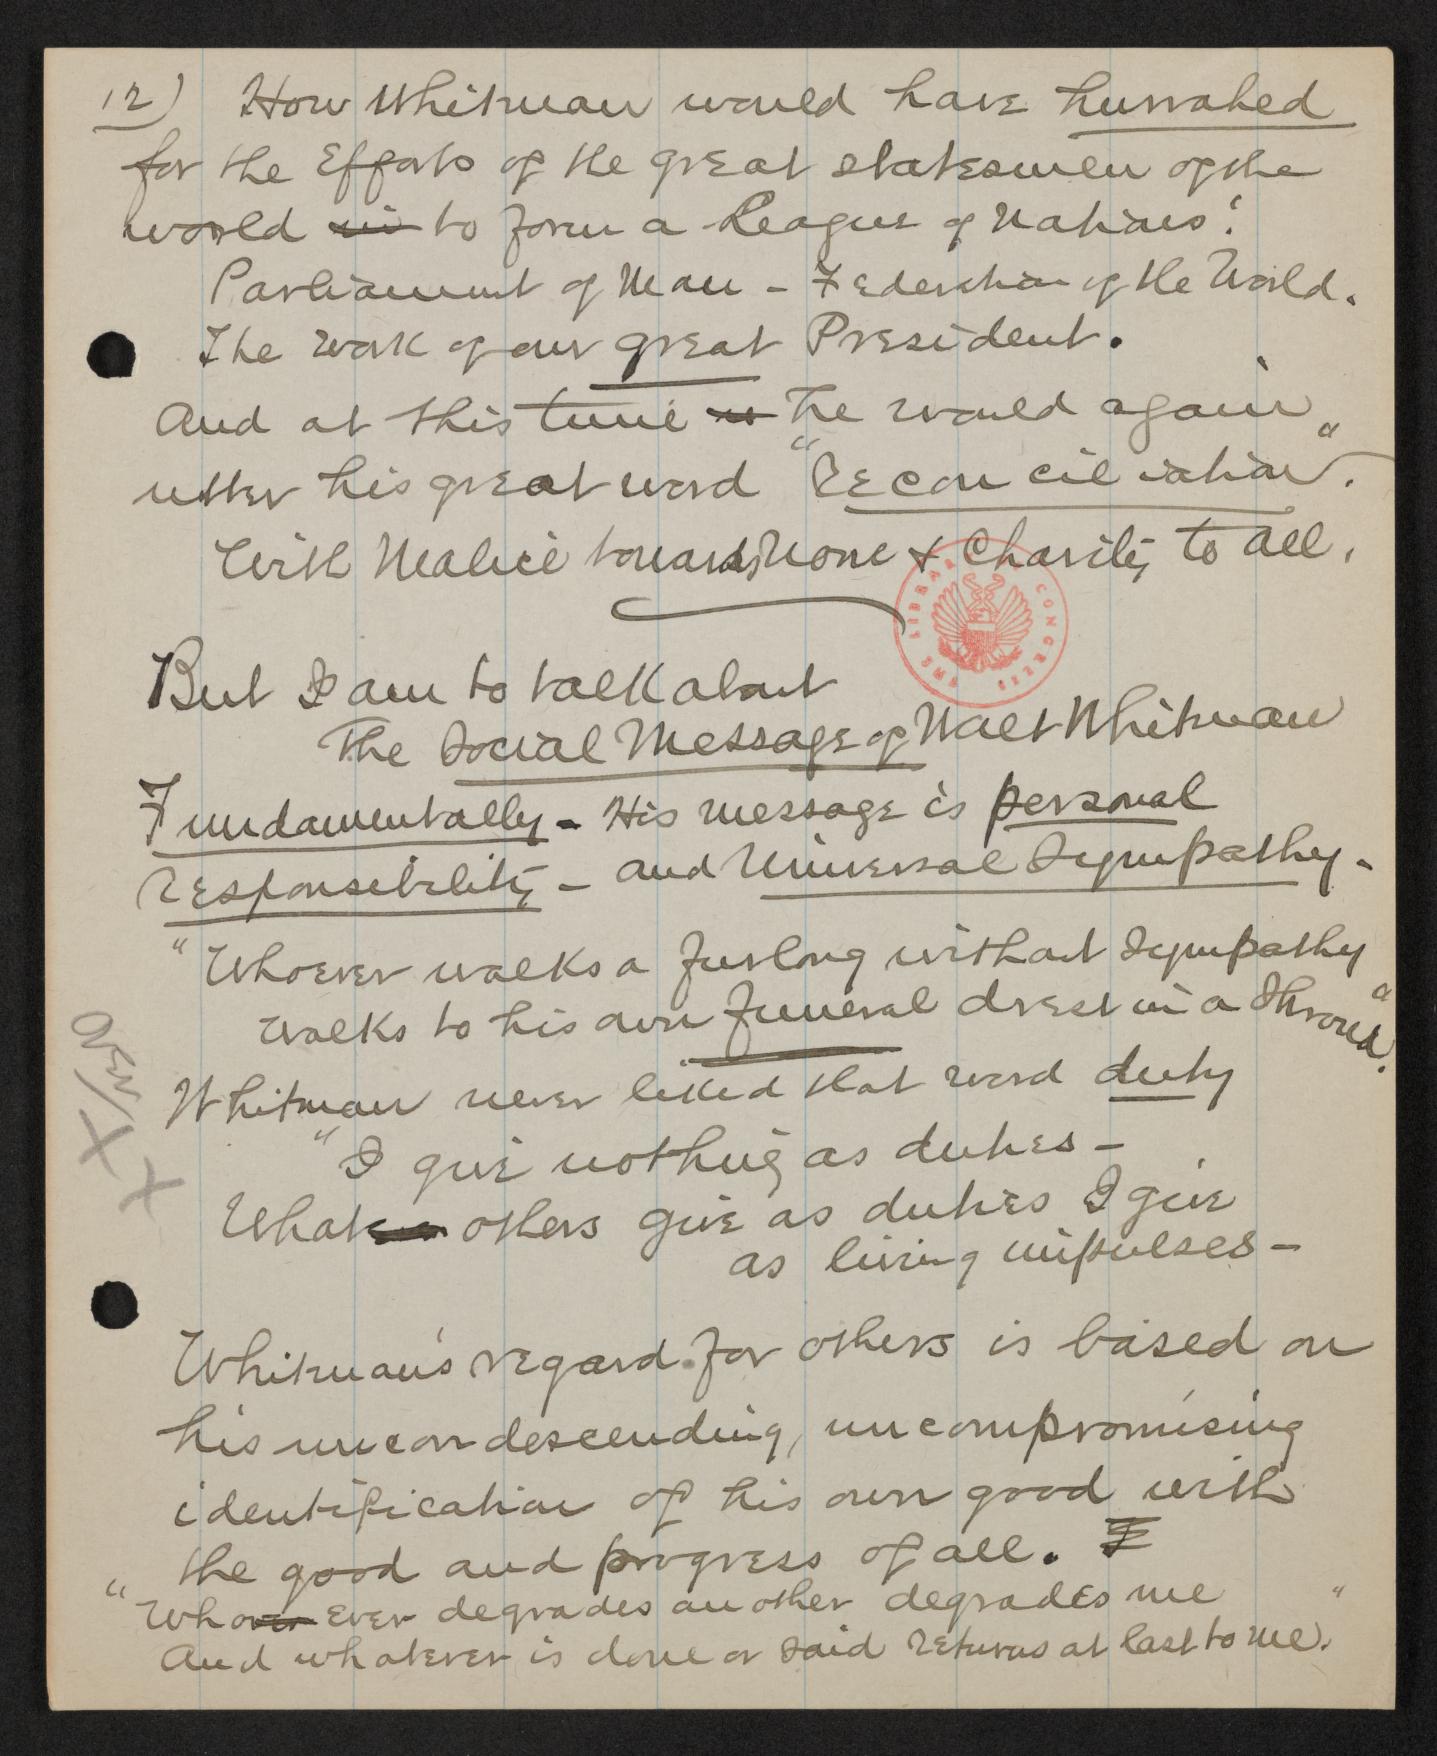 12) How Whitman would have hurrahed
for the Efforts of the great statesmen of the
world in to form a League of Nations!
Parliament of Man - Federation of the World.
The work of our great President.
And at this time us he would again
utter his great word "Reconciliation".
With Malice towards None & Charity to all.
THE LIBRARY OF CONGRESS
But I am to talk about
The Social Message of Walt Whitman
Fundamentally - His message is personal
responsibility - and Universal Sympathy -
"Whoever walks a furlong without sympathy
walks to his own funeral drest in a Shroud."
Whitman never liked that word duty
"I give nothing as duties -
What others give as duties I give
as living impulses -
OVER
X X
Whitman's regard for others is based on
his uncondescending, uncompromising
identification of his own good with
the good and progress of all. I
"Whoever Ever degrades another degrades me
And whatever is done or said returns at last to me."